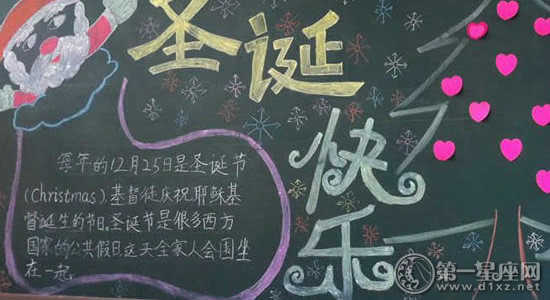 圣诞
快乐
每年的12月25日是圣诞节
(Christmas),基督徒庆祝耶稣基
督诞生的节日,圣诞节是很多西方
国家的公共假日,这天全家人会围坐
在一起
第一星座网
www.d1xz.net